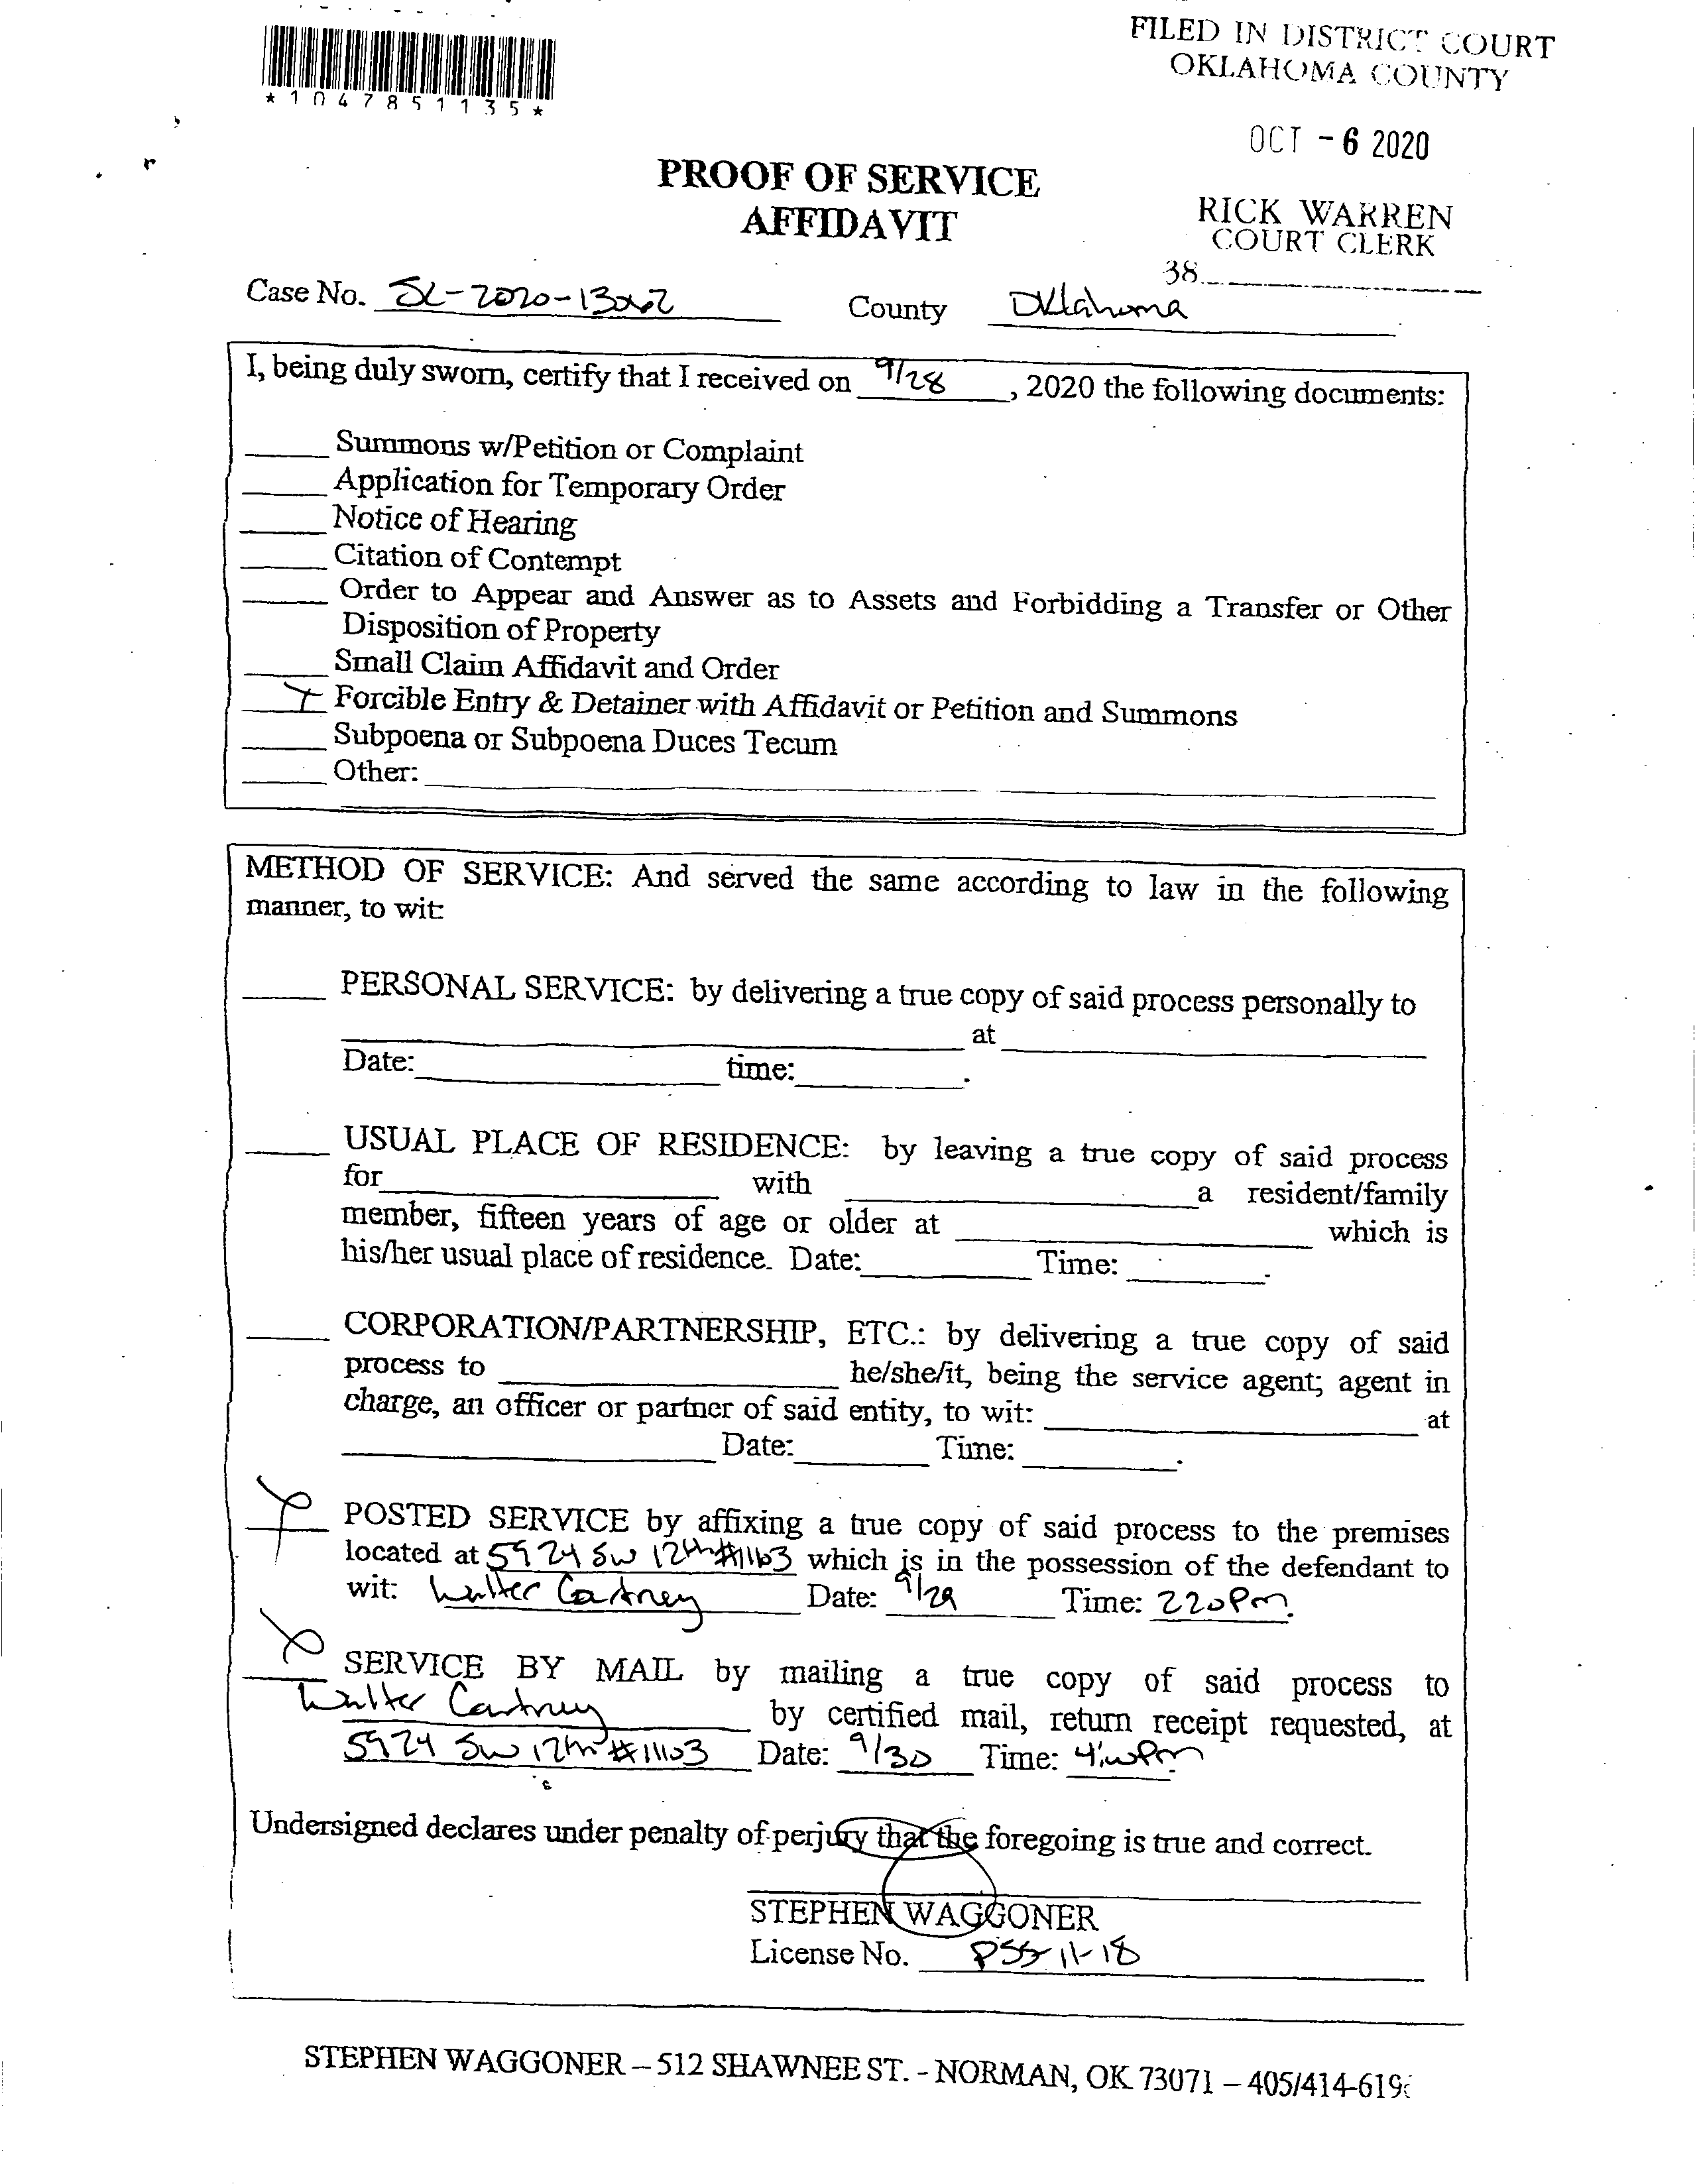 FILED IN DISTRICT COURT
OKLAHOMA COUNTY
*1047851135*
OCT - 6 2020
PROOF OF SERVICE
AFFIDAVIT
RICK WARREN
COURT CLERK
38
Case No. SC-2020-13062 County Oklahoma
I, being duly sworn, certify that I received on 9/28, 2020 the following documents:
Summons w/Petition or Complaint
Application for Temporary Order
Notice of Hearing
Citation of Contempt
Order to Appear and Answer as to Assets and Forbidding a Transfer or Other
Disposition of Property
Small Claim Affidavit and Order
X Forcible Entry & Detainer with Affidavit or Petition and Summons
Subpoena or Subpoena Duces Tecum
Other:
METHOD OF SERVICE: And served the same according to law in the following
manner, to wit:
PERSONAL SERVICE: by delivering a true copy of said process personally to
at
Date: time: .
USUAL PLACE OF RESIDENCE: by leaving a true copy of said process
for with a resident/family
member, fifteen years of age or older at which is
his/her usual place of residence. Date: Time: .
CORPORATION/PARTNERSHIP, ETC.: by delivering a true copy of said
process to he/she/it, being the service agent; agent in
charge, an officer or partner of said entity, to wit: at
Date: Time: .
X POSTED SERVICE by affixing a true copy of said process to the premises
located at 5924 SW 12th #1163 which is in the possession of the defendant to
wit: Walter Date: 9/29 Time: 220 Pm.
X SERVICE BY MAIL by mailing a true copy of said process to
Walter
by certified mail, return receipt requested, at
5924 SW 12th Date: 9/30 Time: 4:00 Pm
Undersigned declares under penalty of perjury that the foregoing is true and correct.
STEPHEN WAGGONER
License No. PSS-11-18
STEPHEN WAGGONER – 512 SHAWNEE ST. - NORMAN, OK 73071 – 405/414-619